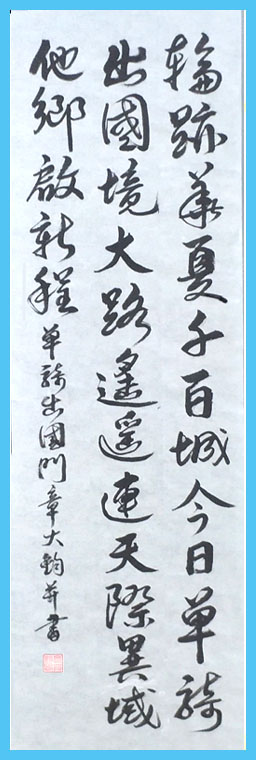 輪跡華夏千百城今日單騎
出國境大路遙遥連天際異域
他鄉啟新程單騎出國門章大鈞并書